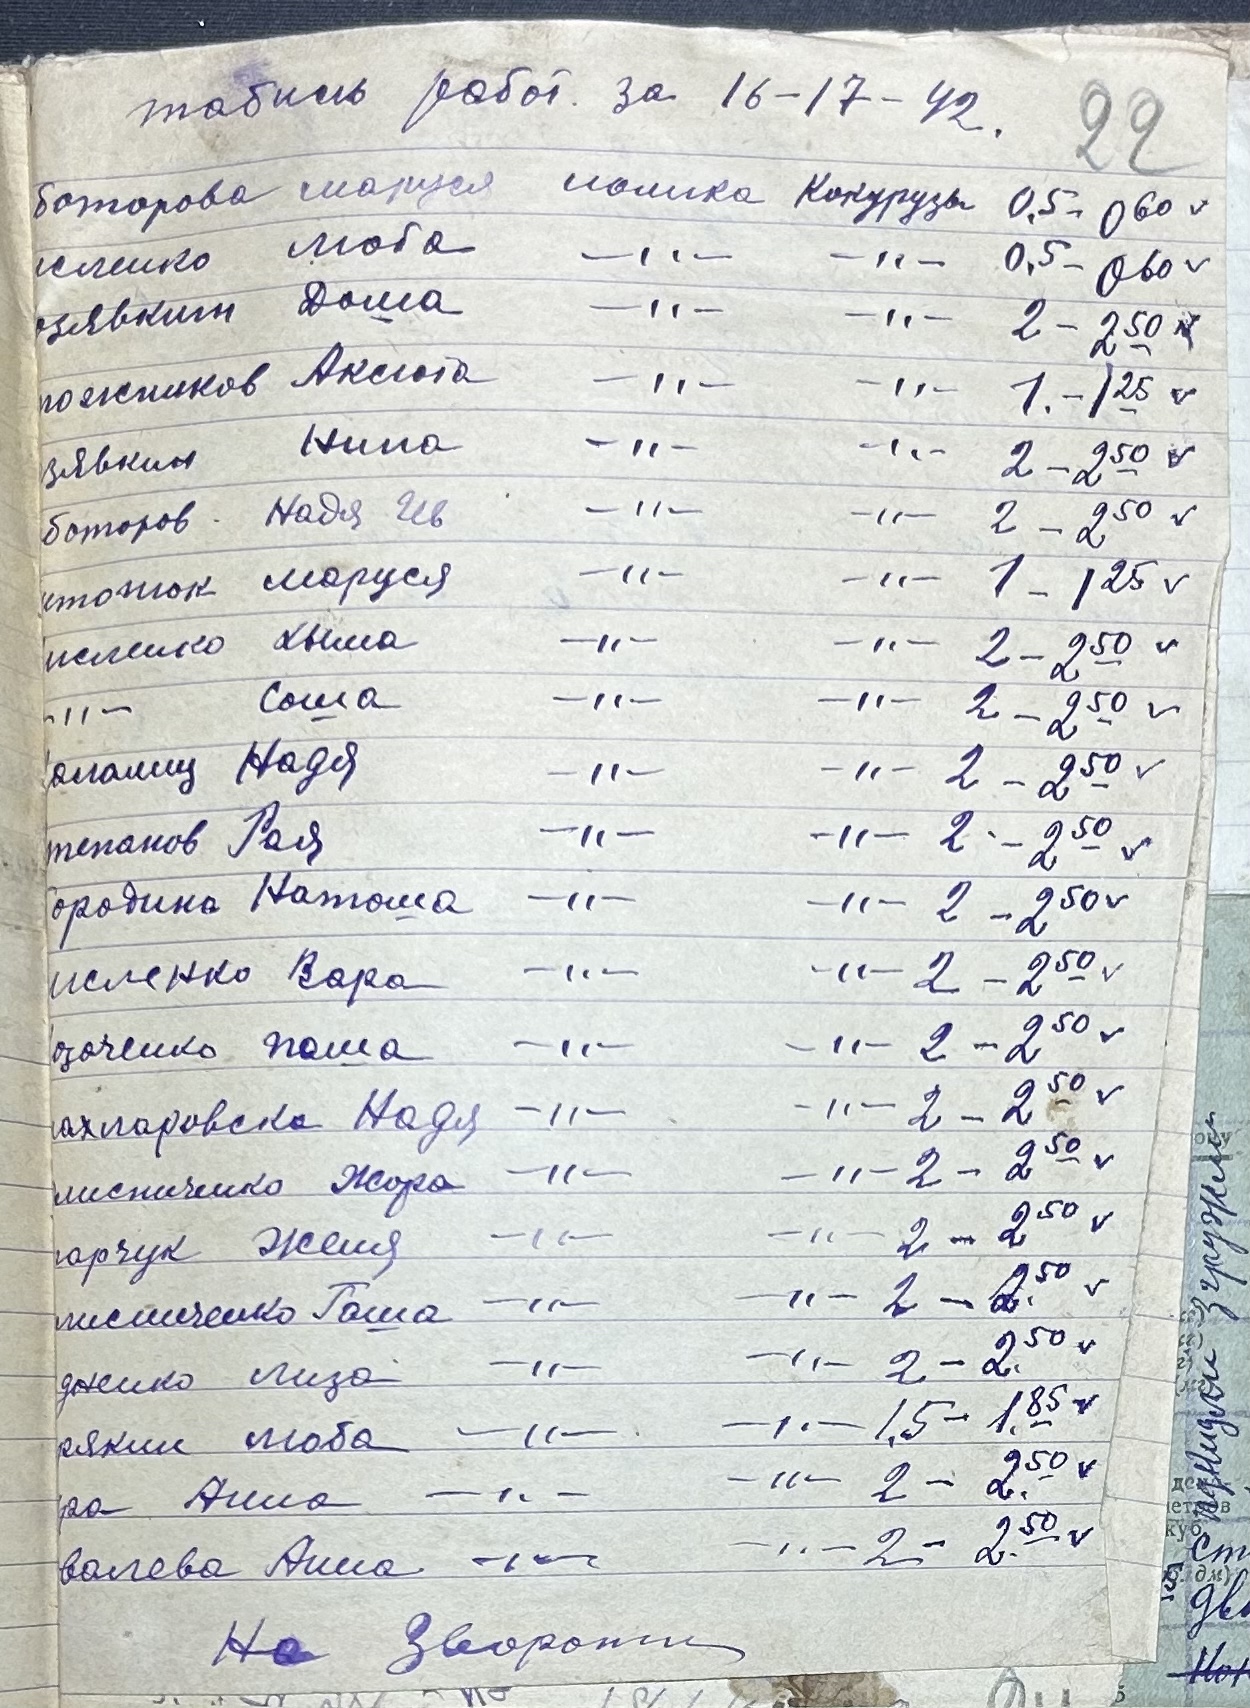 табель работ. за 16-17-42.
22
боторова маруся полика Кокурузы 0,5- 0 60 v
исленко Люба —"— —"— 0,5- 0 60 v
озявкин Даша —"— —"— 2 - 2 50 v
рожников Аксюта —"— —"— 1. - 1 25 v
зявкин Нина —"— —"— 2 - 2 50 v
боторов. Надя Ив —"— —"— 2 - 2 50 v
итонюк маруся —"— —"— 1 - 1 25 v
исленко Хыма —"— —"— 2 - 2 50 v
—"— Саша —"— —"— 2 - 2 50 v
Надя —"— —"— 2 - 2 50 v
тепанов Рая —"— —"— 2 - 2 50 v
ородина Наташа —"— —"— 2 - 2 50 v
исленко Вара —"— —"— 2 - 2 50 v
озаченко паша —"— —"— 2 - 2 50 v
Надя —"— —"— 2 - 2 50 v
лисниченко Жора —"— —"— 2 - 2 50 v
арчук Женя —"— —"— 2 - 2 50 v
лисниченко Гаша —"— —"— 2 - 2. 50 v
дженко лиза —"— —"— 2 - 2. 50 v
рякин люба —"— —"— 1,5 - 1. 85 v
ра Анна —"— —"— 2 - 2. 50 v
валева Анна —"— —"— 2 - 2. 50 v
На Звороти